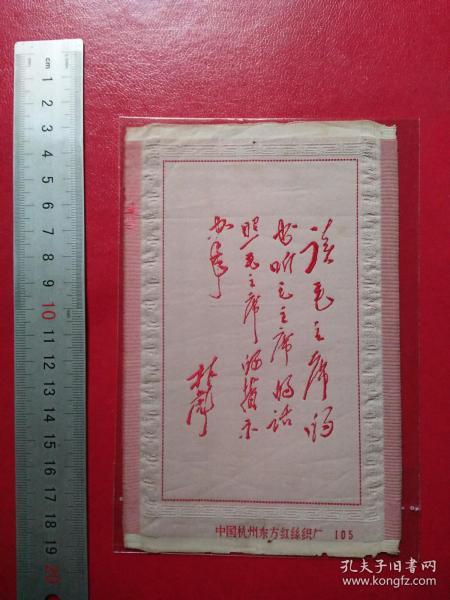 读毛主席的
书听毛主席的话
照毛主席的指示
办事
林彪
中国杭州东方红丝织厂 105
cm 1 2 3 4 5 6 7 8 9 10 11 12 13 14 15 16 17 18 19 20
孔夫子旧书网
www.kongfz.com